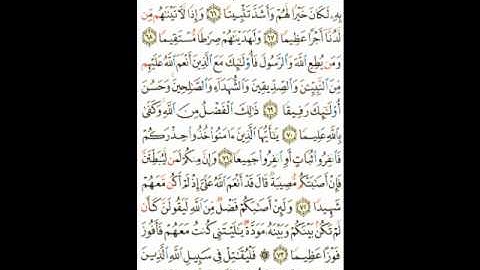 بِهِۦ لَكَانَ خَيْرًا لَّهُمْ وَأَشَدَّ تَثْبِيتًا ٦٦ وَإِذًا لَّـَٔاتَيْنَٰهُم مِّن
لَّدُنَّآ أَجْرًا عَظِيمًا ٦٧ وَلَهَدَيْنَٰهُمْ صِرَٰطًا مُّسْتَقِيمًا ٦٨
وَمَن يُطِعِ ٱللَّهَ وَٱلرَّسُولَ فَأُو۟لَٰٓئِكَ مَعَ ٱلَّذِينَ أَنْعَمَ ٱللَّهُ عَلَيْهِم
مِّنَ ٱلنَّبِيِّـۧنَ وَٱلصِّدِّيقِينَ وَٱلشُّهَدَآءِ وَٱلصَّٰلِحِينَ وَحَسُنَ
أُو۟لَٰٓئِكَ رَفِيقًا ٦٩ ذَٰلِكَ ٱلْفَضْلُ مِنَ ٱللَّهِ وَكَفَىٰ
بِٱللَّهِ عَلِيمًا ٧٠ يَٰٓأَيُّهَا ٱلَّذِينَ ءَامَنُوا۟ خُذُوا۟ حِذْرَكُمْ
فَٱنفِرُوا۟ ثُبَاتٍ أَوِ ٱنفِرُوا۟ جَمِيعًا ٧١ وَإِنَّ مِنكُمْ لَمَن لَّيُبَطِّئَنَّ
فَإِنْ أَصَٰبَتْكُم مُّصِيبَةٌ قَالَ قَدْ أَنْعَمَ ٱللَّهُ عَلَىَّ إِذْ لَمْ أَكُن مَّعَهُمْ
شَهِيدًا ٧٢ وَلَئِنْ أَصَٰبَكُمْ فَضْلٌ مِّنَ ٱللَّهِ لَيَقُولَنَّ كَأَن
لَّمْ تَكُنۢ بَيْنَكُمْ وَبَيْنَهُۥ مَوَدَّةٌ يَٰلَيْتَنِى كُنتُ مَعَهُمْ فَأَفُوزَ
فَوْزًا عَظِيمًا ٧٣ ۞ فَلْيُقَٰتِلْ فِى سَبِيلِ ٱللَّهِ ٱلَّذِينَ